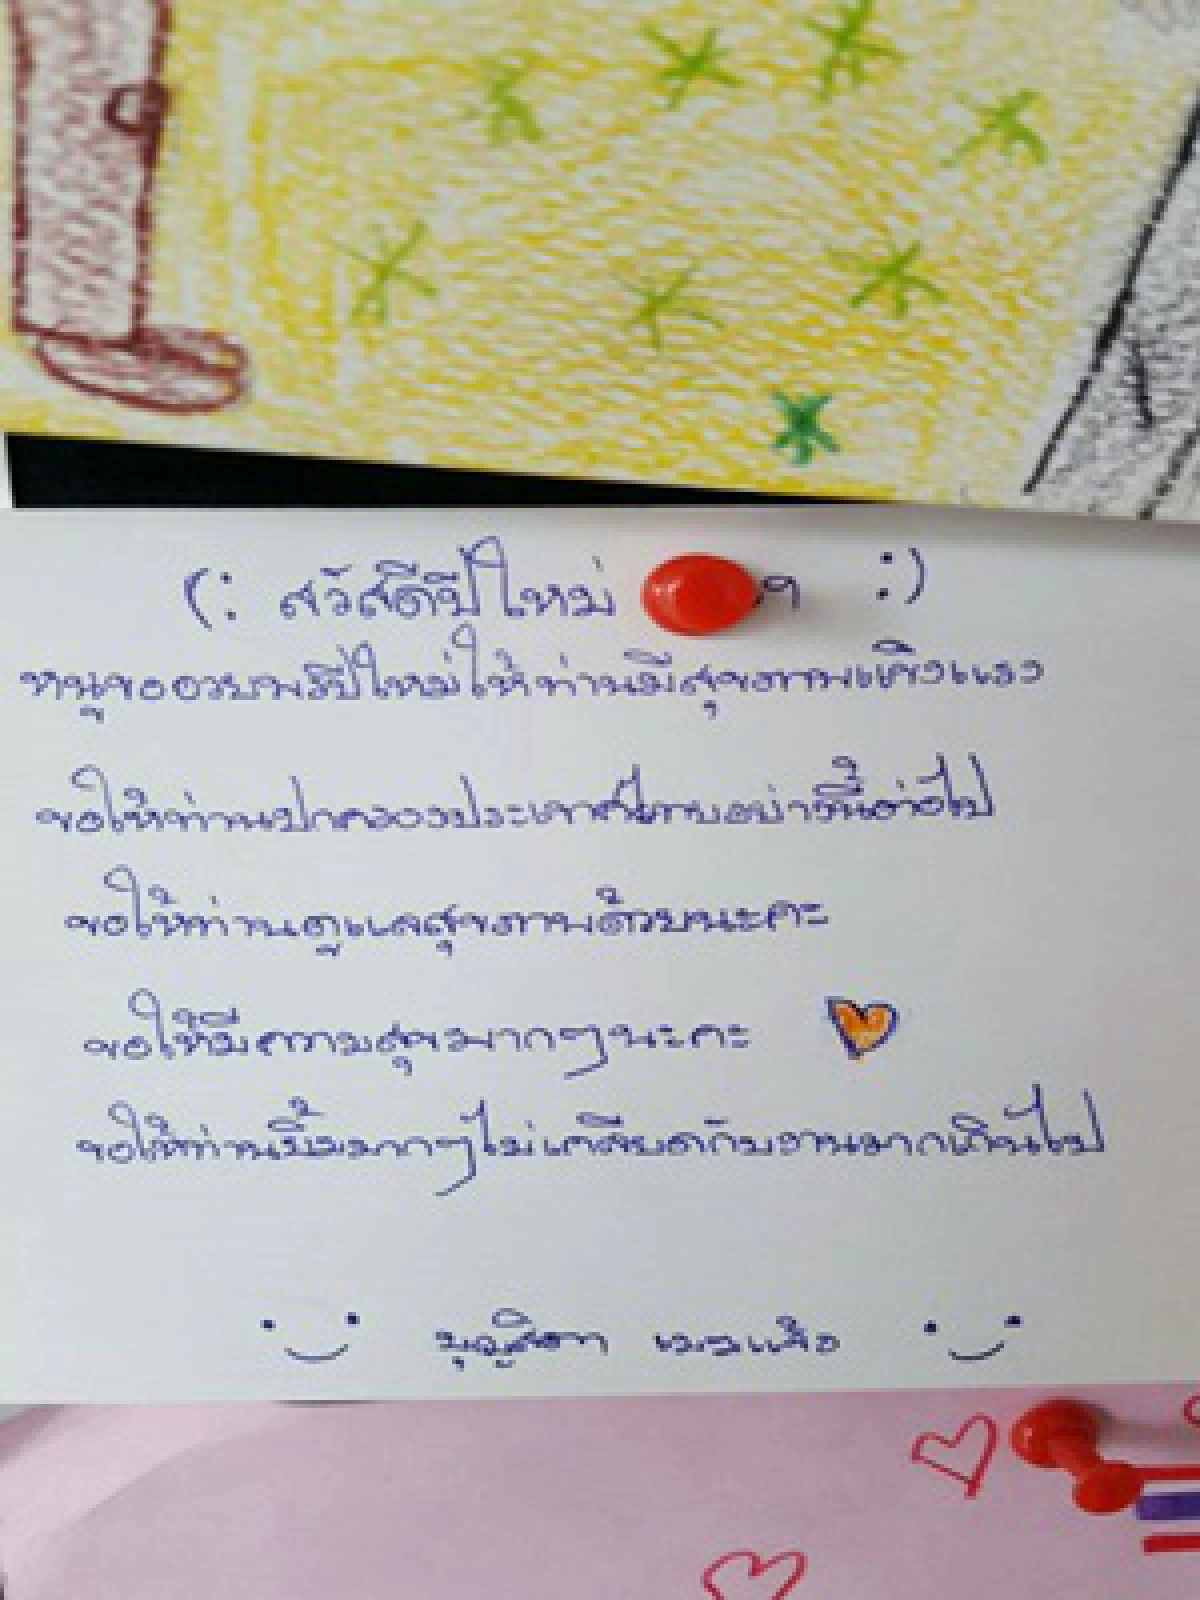 (: สวัสดีปีใหม่ :)
หนูขออวยพรปีใหม่ให้ท่านมีสุขภาพแข็งแรง
ขอให้ท่านปกครองประเทศไทยอย่างนี้ต่อไป
ขอให้ท่านดูแลสุขภาพด้วยนะคะ
ขอให้มีความสุขมากๆนะคะ
ขอให้ท่านยิ้มมากๆไม่เครียดกับงานมากเกินไป